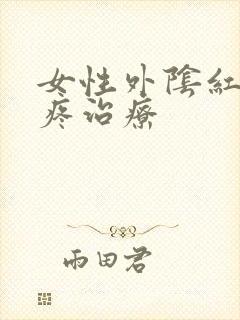 女性外陰紅
疼治療
雨田君